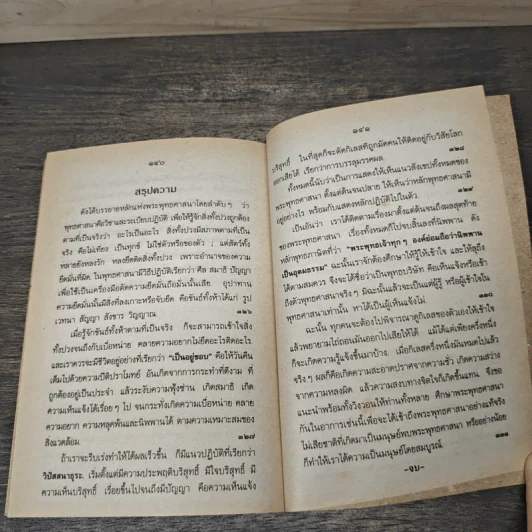 ๑๔๐
สรุปความ
ดังได้บรรยายหลักแห่งพระพุทธศาสนาโดยลำดับๆ ว่า
พุทธศาสนาคือวิชาและระเบียบปฏิบัติ เพื่อให้รู้จักสิ่งทั้งปวงถูกต้อง
ตามที่เป็นจริงว่า อะไรเป็นอะไร สิ่งทั้งปวงมีสภาพตามที่เป็น
จริง คือไม่เที่ยง เป็นทุกข์ ไม่ใช่ตัวหรือของตัว แต่สัตว์ทั้ง
หลายยังหลงรัก หลงยึดติดสิ่งทั้งปวง เพราะอำนาจของความ
ยึดมั่นที่ผิด ในพุทธศาสนามีวิธีปฏิบัติเรียกว่า ศีล สมาธิ ปัญญา
เพื่อใช้เป็นเครื่องมือตัดความยึดมั่นถือมั่นนั้นเสีย อุปาทาน
ความยึดมั่นนั้นมีสิ่งที่ลงเกาะหรือจับยึด คือขันธ์ทั้งห้าได้แก่ รูป
เวทนา สัญญา สังขาร วิญญาณ.
๑๒๖
เมื่อรู้จักขันธ์ทั้งห้าตามที่เป็นจริง ก็จะสามารถเข้าใจสิ่ง
ทั้งปวงจนถึงกับเบื่อหน่าย คลายความอยากไม่ยึดอะไรติดอะไร.
และเราควรจะมีชีวิตอยู่อย่างที่เรียกว่า "เป็นอยู่ชอบ" คือให้วันคืน
เต็มไปด้วยความปีติปราโมทย์ อันเกิดจากการกระทำที่ดีงาม ที่
ถูกต้องอยู่เป็นประจำ แล้วระงับความฟุ้งซ่าน เกิดสมาธิ เกิด
ความเห็นแจ้งได้เรื่อยๆ ไป จนกระทั่งเกิดความเบื่อหน่าย คลาย
ความอยาก ความหลุดพ้นและนิพพานได้ ตามความเหมาะสมของ
สิ่งแวดล้อม.
๑๒๗
ถ้าเราจะรีบเร่งทำให้ได้ผลเร็วขึ้น ก็มีแนวปฏิบัติที่เรียกว่า
วิปัสสนาธุระ, เริ่มตั้งแต่มีความประพฤติบริสุทธิ์ มีใจบริสุทธิ์ มี
ความเห็นบริสุทธิ์ เรื่อยขึ้นไปจนถึงมีปัญญา คือความเห็นแจ้ง
๑๔๑
บริสุทธิ์ ในที่สุดก็จะตัดกิเลสที่ผูกมัดคนให้ติดอยู่กับวิสัยโลก
ออกเสียได้ เรียกว่าการบรรลุมรรคผล.
๑๒๘
ทั้งหมดนี้นับว่าเป็นการแสดงให้เห็นแนวสังเขปทั้งหมดของ
พระพุทธศาสนา ตั้งแต่ต้นจนปลาย ให้เห็นว่าหลักพุทธศาสนามี
อยู่อย่างไร พร้อมกับแสดงหลักปฏิบัติไปในตัว.
๑๒๙
เป็นอันว่า เราได้ติดตามเรื่องมาตั้งแต่ต้นจนถึงผลสุดท้าย
ของพระพุทธศาสนา เรื่องทั้งหมดก็ไปจบสิ้นลงที่นิพพาน ดัง
หลักพุทธภาษิตที่ว่า "พระพุทธเจ้าทุกๆ องค์ย่อมถือว่านิพพาน
เป็นอุดมธรรม" ฉะนั้นเราจักต้องศึกษาให้รู้ให้เข้าใจ และให้ลุถึง
ได้ตามสมควร จึงจะได้ชื่อว่าเป็นพุทธบริษัท คือเห็นแจ้งหรือเข้า
ถึงตัวพุทธศาสนาจริงๆ มิฉะนั้นแล้วจะเป็นแต่ผู้รู้ หรือผู้เข้าใจใน
พุทธศาสนาเท่านั้น หาได้เป็นผู้เห็นแจ้งไม่.
๑๓๐
ฉะนั้น ทุกคนจะต้องไปพิจารณาดูกิเลสของตัวเองให้เข้าใจ
แล้วพยายามไถ่ถอนมันออกไปเสียให้ได้ แม้ได้แต่เพียงครึ่งหนึ่ง
ก็จะเกิดความรู้แจ้งขึ้นมาบ้าง. เมื่อกิเลสครึ่งหนึ่งมันหมดไปแล้ว
จริงๆ ผลก็คือเกิดความสะอาดปราศจากความชั่ว เกิดความสว่าง
จากความหลงผิด แล้วความสงบทางจิตใจก็เกิดขึ้นแทน. จึงขอ
แนะนำพร้อมทั้งวิงวอนให้ท่านทั้งหลาย ศึกษาพระพุทธศาสนา
กันในอาการเช่นนี้เพื่อจะได้เข้าถึงพระพุทธศาสนาอย่างแท้จริง
ไม่เสียชาติที่เกิดมาเป็นมนุษย์พบพระพุทธศาสนา หรืออย่างน้อย
ก็ทำให้เราได้ความเป็นมนุษย์โดยสมบูรณ์.
๑๓๑
-จบ-